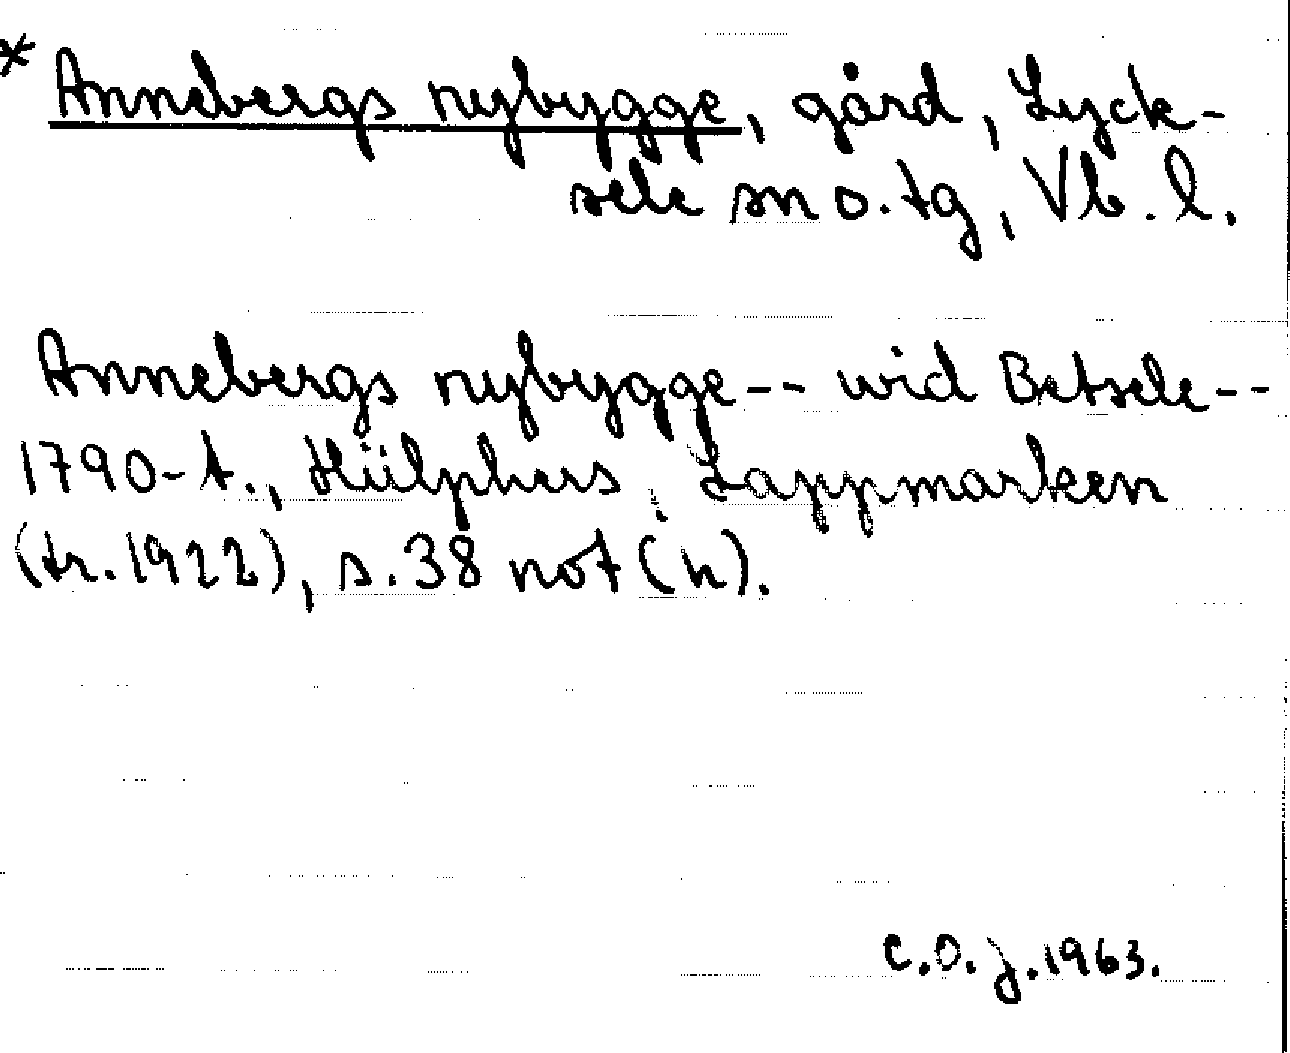 * Annebergs nybygge, gård, Lyck-
sele sn o. tg, Vb. l.
Annebergs nybygge-- wid Betsele--
1790-t., Hülphers, Lappmarken
(tr. 1922), s. 38 not (h).
C.O.J. 1963.